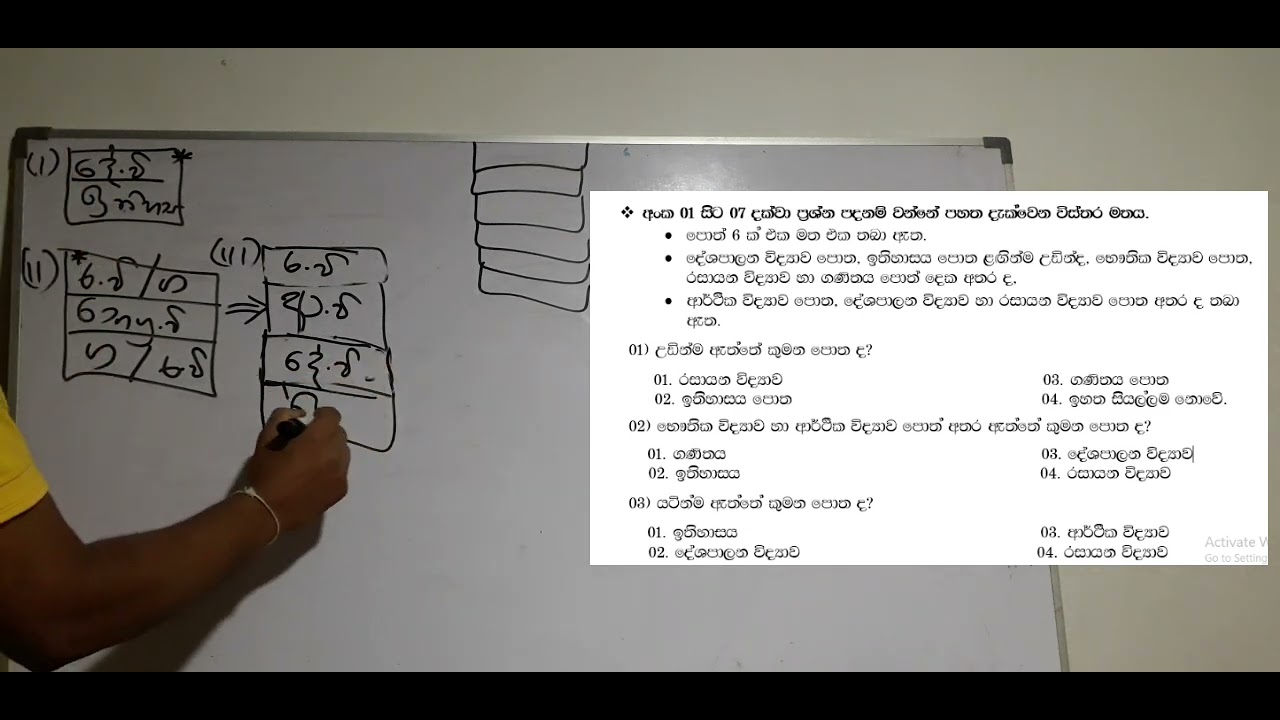 (I) දේ.වි *
ඉතිහාස
(II) * ර.වි / ග
භෞ.වි
ග / ර.වි
(III) ර.වි
ආ.වි
දේ.වි
❖ අංක 01 සිට 07 දක්වා ප්‍රශ්න පදනම් වන්නේ පහත දැක්වෙන විස්තර මතය.
• පොත් 6 ක් එක මත එක තබා ඇත.
• දේශපාලන විද්‍යාව පොත, ඉතිහාසය පොත ළඟින්ම උඩින්ද, භෞතික විද්‍යාව පොත,
රසායන විද්‍යාව හා ගණිතය පොත් දෙක අතර ද,
• ආර්ථික විද්‍යාව පොත, දේශපාලන විද්‍යාව හා රසායන විද්‍යාව පොත අතර ද තබා
ඇත.
01) උඩින්ම ඇත්තේ කුමන පොත ද?
01. රසායන විද්‍යාව 03. ගණිතය පොත
02. ඉතිහාසය පොත 04. ඉහත සියල්ලම නොවේ.
02) භෞතික විද්‍යාව හා ආර්ථික විද්‍යාව පොත් අතර ඇත්තේ කුමන පොත ද?
01. ගණිතය 03. දේශපාලන විද්‍යාව
02. ඉතිහාසය 04. රසායන විද්‍යාව
03) යටින්ම ඇත්තේ කුමන පොත ද?
01. ඉතිහාසය 03. ආර්ථික විද්‍යාව
02. දේශපාලන විද්‍යාව 04. රසායන විද්‍යාව
Activate
Go to Setting